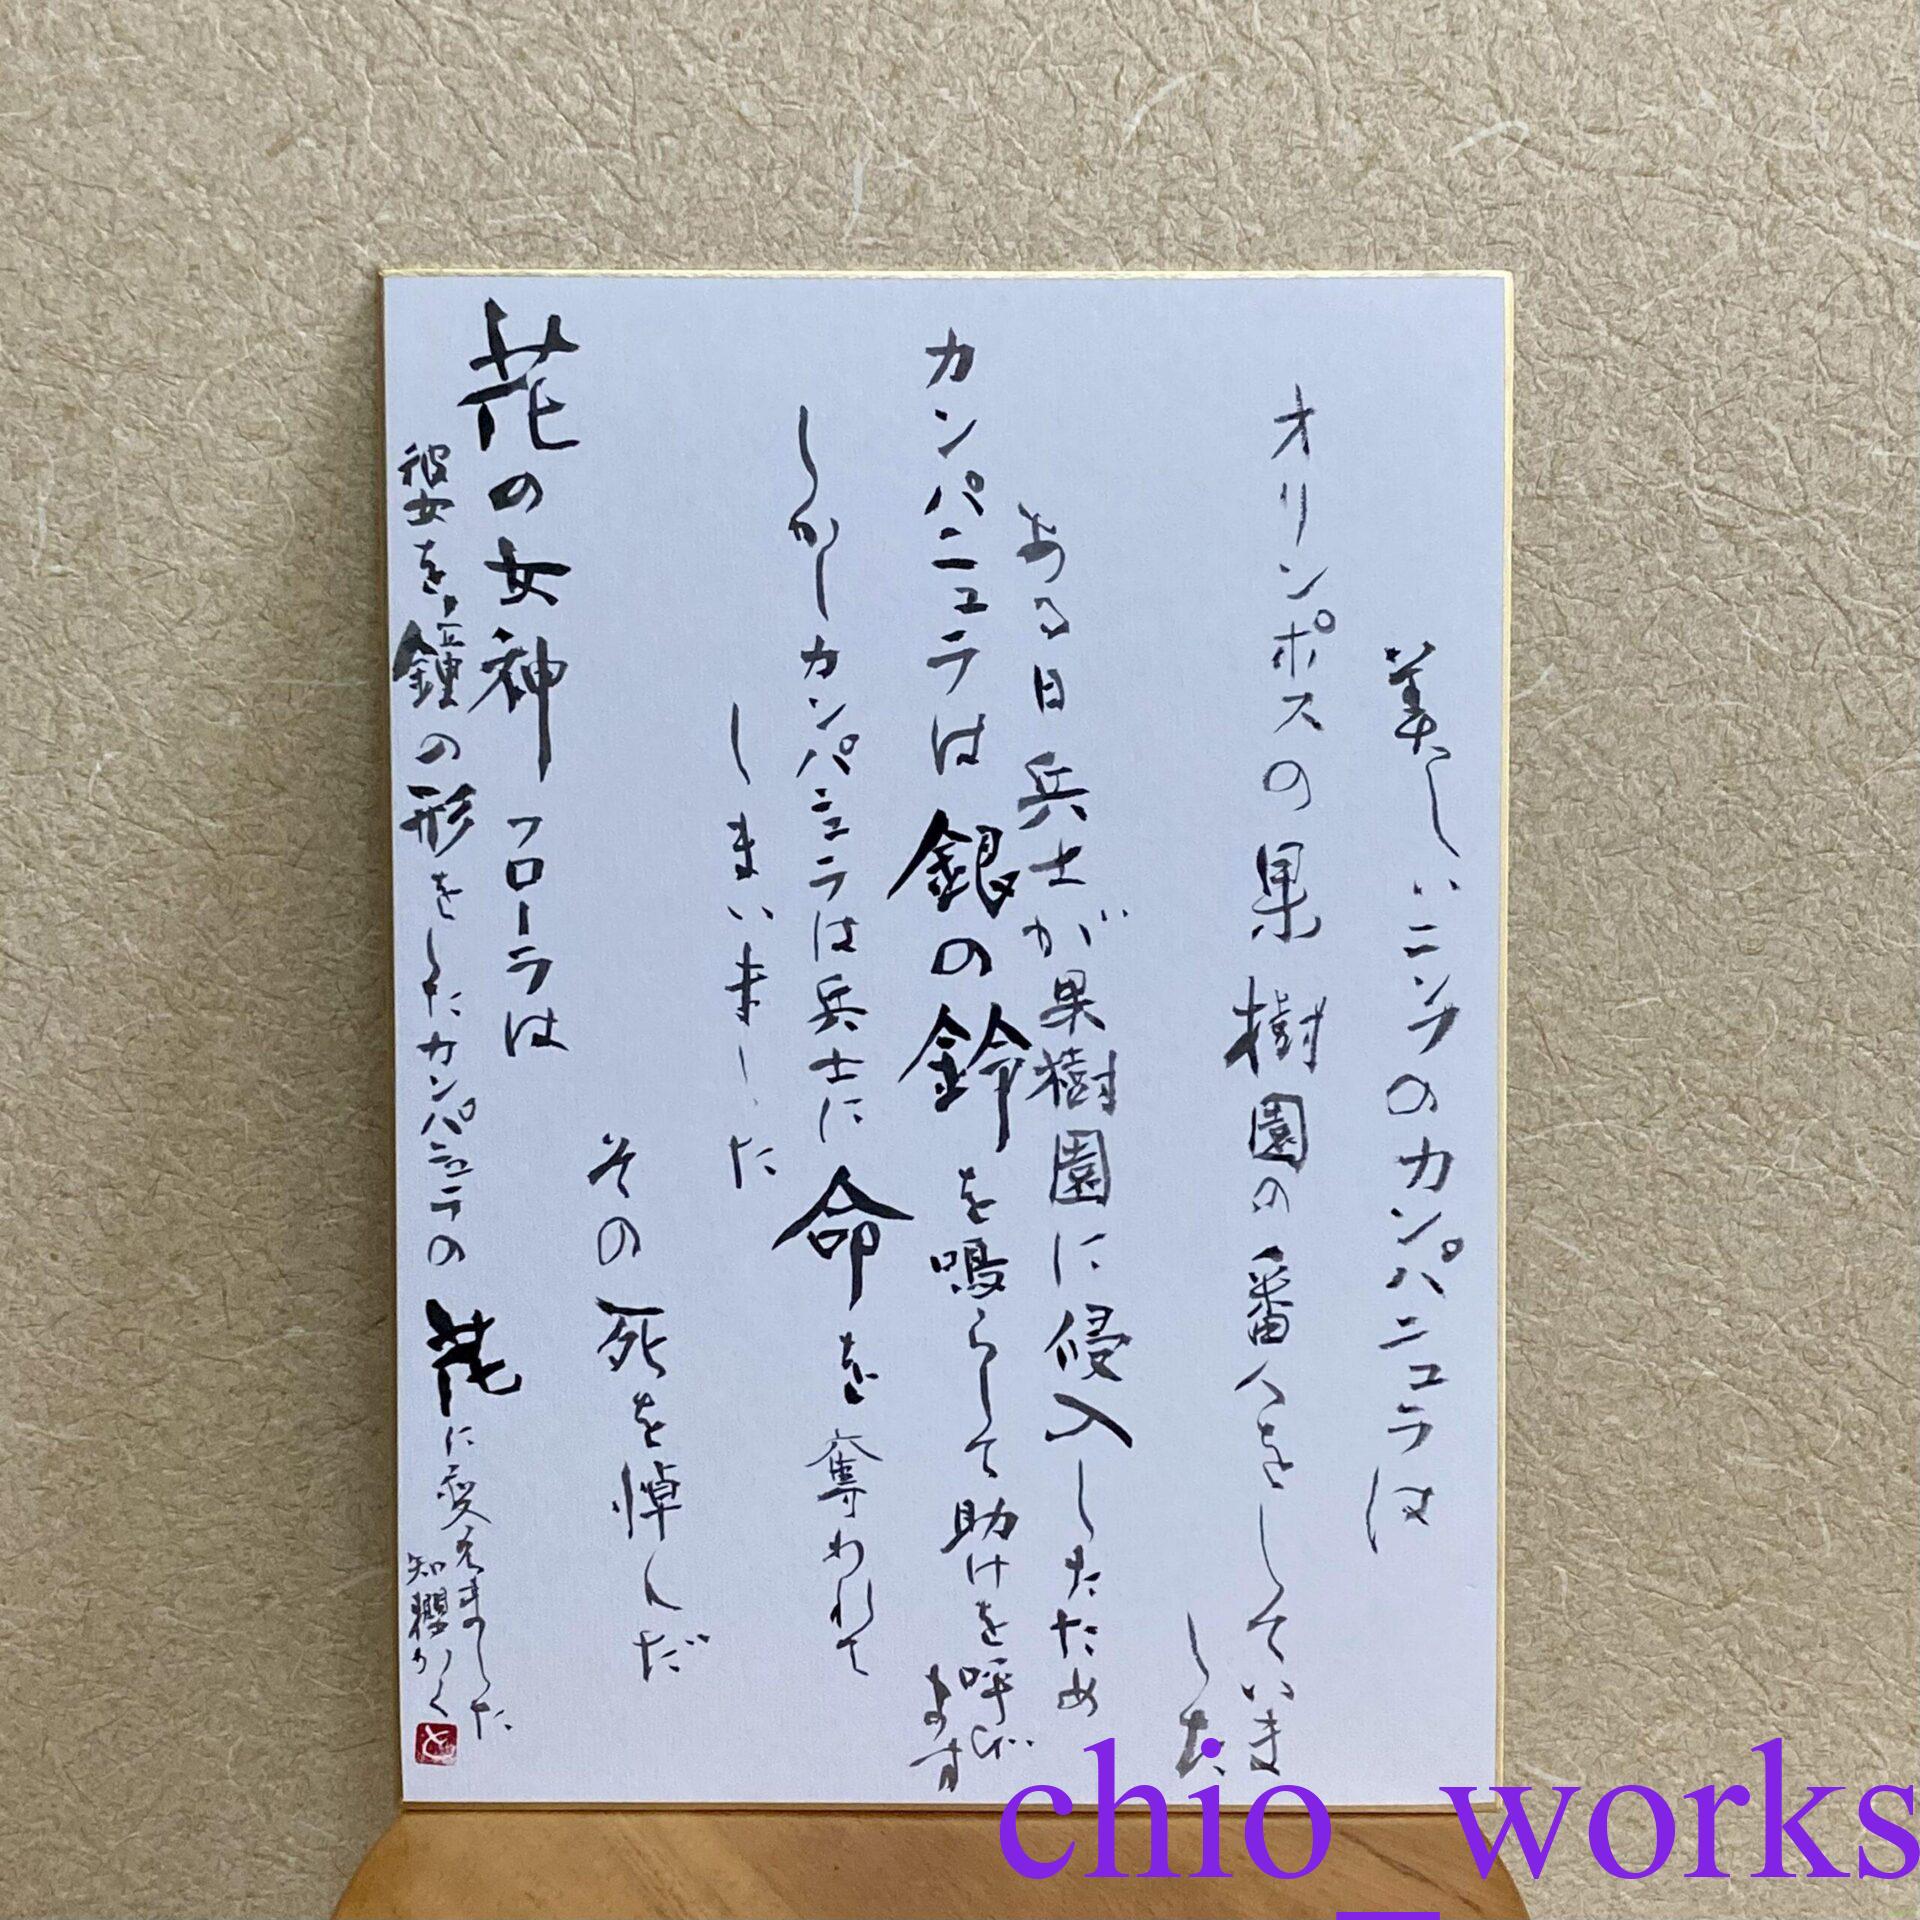 美しいニンフのカンパニュラは
オリンポスの果樹園の番人をしていました
ある日兵士が果樹園に侵入したため
カンパニュラは銀の鈴を鳴らして助けを呼びます
しかしカンパニュラは兵士に命を奪われて
しまいました
その死を悼んだ
花の女神フローラは
彼女を鐘の形をしたカンパニュラの花に変えました
知櫻かく
と
chio_works